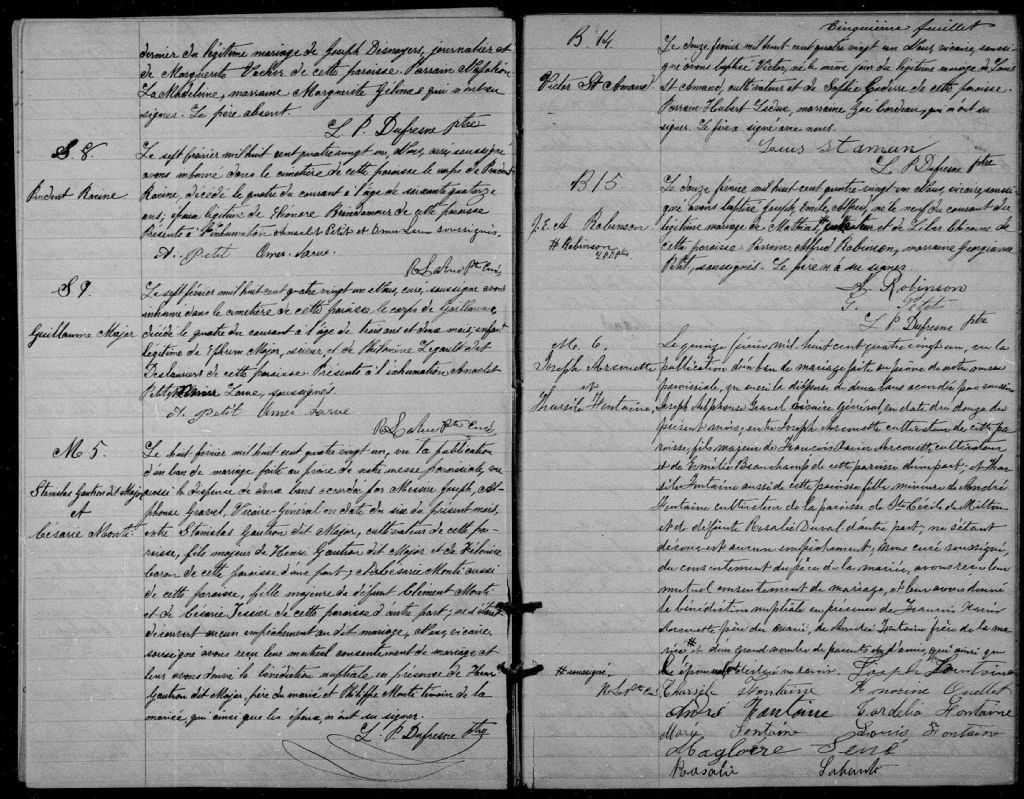 dernier du légitime mariage de Joseph Desnoyers, journalier et
de Marguerite Vacher de cette paroisse. Parrain Napoléon
La Madeleine, marraine Marguerite Gélinas qui n'ont su
signer. Le père absent.
L. P. Dufresne ptre
S. 8.
Prudent Racine
Le sept février mil huit cent quatre vingt un, Nous, curé, soussigné
avons inhumé dans le cimetière de cette paroisse le corps de Prudent
Racine, décédé le quatre du courant à l'âge de soixante quatorze
ans; époux légitime de Honore Brindamour de cette paroisse
Présents à l'inhumation Anaclet Petit et Omer Larue soussignés.
A. Petit Omer Larue
Ptre Curé
S 9.
Guillaume Major
Le sept février mil huit cent quatre vingt un Nous, curé, soussigné avons
inhumé dans le cimetière de cette paroisse le corps de Guillaume,
décédé le quatre du courant à l'âge de trois ans et deux mois, enfant
légitime de Ephrem Major, et de Philomène Legault dit
Deslauriers de cette paroisse Présents à l'inhumation Anaclet
Petit et Omer Larue, soussignés.
A. Petit Omer Larue
Ptre Curé
M 5.
Stanislas Gautron dit Major
et
Césarie Monti
Le huit février mil huit cent quatre vingt un, vu la publication
d'un ban de mariage faite au prône de notre messe paroissiale, vu
aussi la dispense de deux bans accordée par Messire Joseph, Al-
phonse Gravel, Vicaire-Général en date du six du présent mois,
entre Stanislas Gautron dit Major, cultivateur de cette pa-
roisse, fils majeur de Henri Gautron dit Major et de
Caron de cette paroisse d'une part; et Césarie Monti aussi
de cette paroisse, fille majeure de défunt Clément Monti
et de Césarie Tessier de cette paroisse d'autre part; ne s'étant
découvert aucun empêchement au dit mariage, Nous, vicaire,
soussigné avons reçu leur mutuel consentement de mariage et
leur avons donné la bénédiction nuptiale en présence de Henri
Gautron dit Major, père du marié et Philippe Monti témoin de la
mariée qui ainsi que les époux, n'ont su signer.
L. P. Dufresne ptre
Cinquième feuillet
B. 14.
Victor St Amand
Le douze février mil huit cent quatre vingt un Nous, vicaire, soussi-
gné avons baptisé Victor, né le même jour du légitime mariage de Louis
St Amand, cultivateur et de Sophie de cette paroisse.
Parrain Hubert Leduc, marraine Bordeau, qui n'ont su
signer. Le père a signé avec nous.
Louis St aman
L. P. Dufresne ptre
B 15
J. E. A. Robinson
# Robinson
L. P. D ptre
Le douze février mil huit cent quatre vingt un Nous, vicaire, soussi-
gné avons baptisé Joseph, Emile, Alfred, né le neuf du courant du
légitime mariage de Mathias # et de de
cette paroisse. Parrain, Alfred Robinson, marraine Georgiana
Petit, soussignés. Le père n'a su signer.
A. Robinson
G. Petit
L. P. Dufresne ptre
M. 6.
Joseph Arcouette
et
Tharsile Fontaine
Le quinze février mil huit cent quatre vingt un, vu la
publication d'un ban de mariage faite au prône de notre messe
paroissiale, vu aussi la dispense de deux bans accordée par messire
Joseph Alphonse Gravel Vicaire Général, en date du douze du
présent mois, entre Joseph Arcouette cultivateur de cette pa-
roisse, fils majeur de François Xavier Arcouette cultivateur
et de Emilie Beauchamp de cette paroisse d'une part, et Thar-
sile Fontaine aussi de cette paroisse fille mineure de André
Fontaine cultivateur de la paroisse de Ste Cécile de Milton
et de défunte Rosalie Duval d'autre part, ne s'étant
découvert aucun empêchement, Nous curé soussigné,
du consentement du père de la mariée, avons reçu leur
mutuel consentement de mariage, et leur avons donné
la bénédiction nuptiale en présence de François Xavier
Arcouette père du marié, de André Fontaine frère de la ma-
riée # et d'un grand nombre de parents et d'amis, qui ainsi que
# soussigné.
Ptre Curé
Joseph Fontaine
Tharsile Fontaine Ouellet
André Fontaine Cordelia Fontaine
Mary Fontaine Louis Fontaine
Magloire Sené
Rosalie